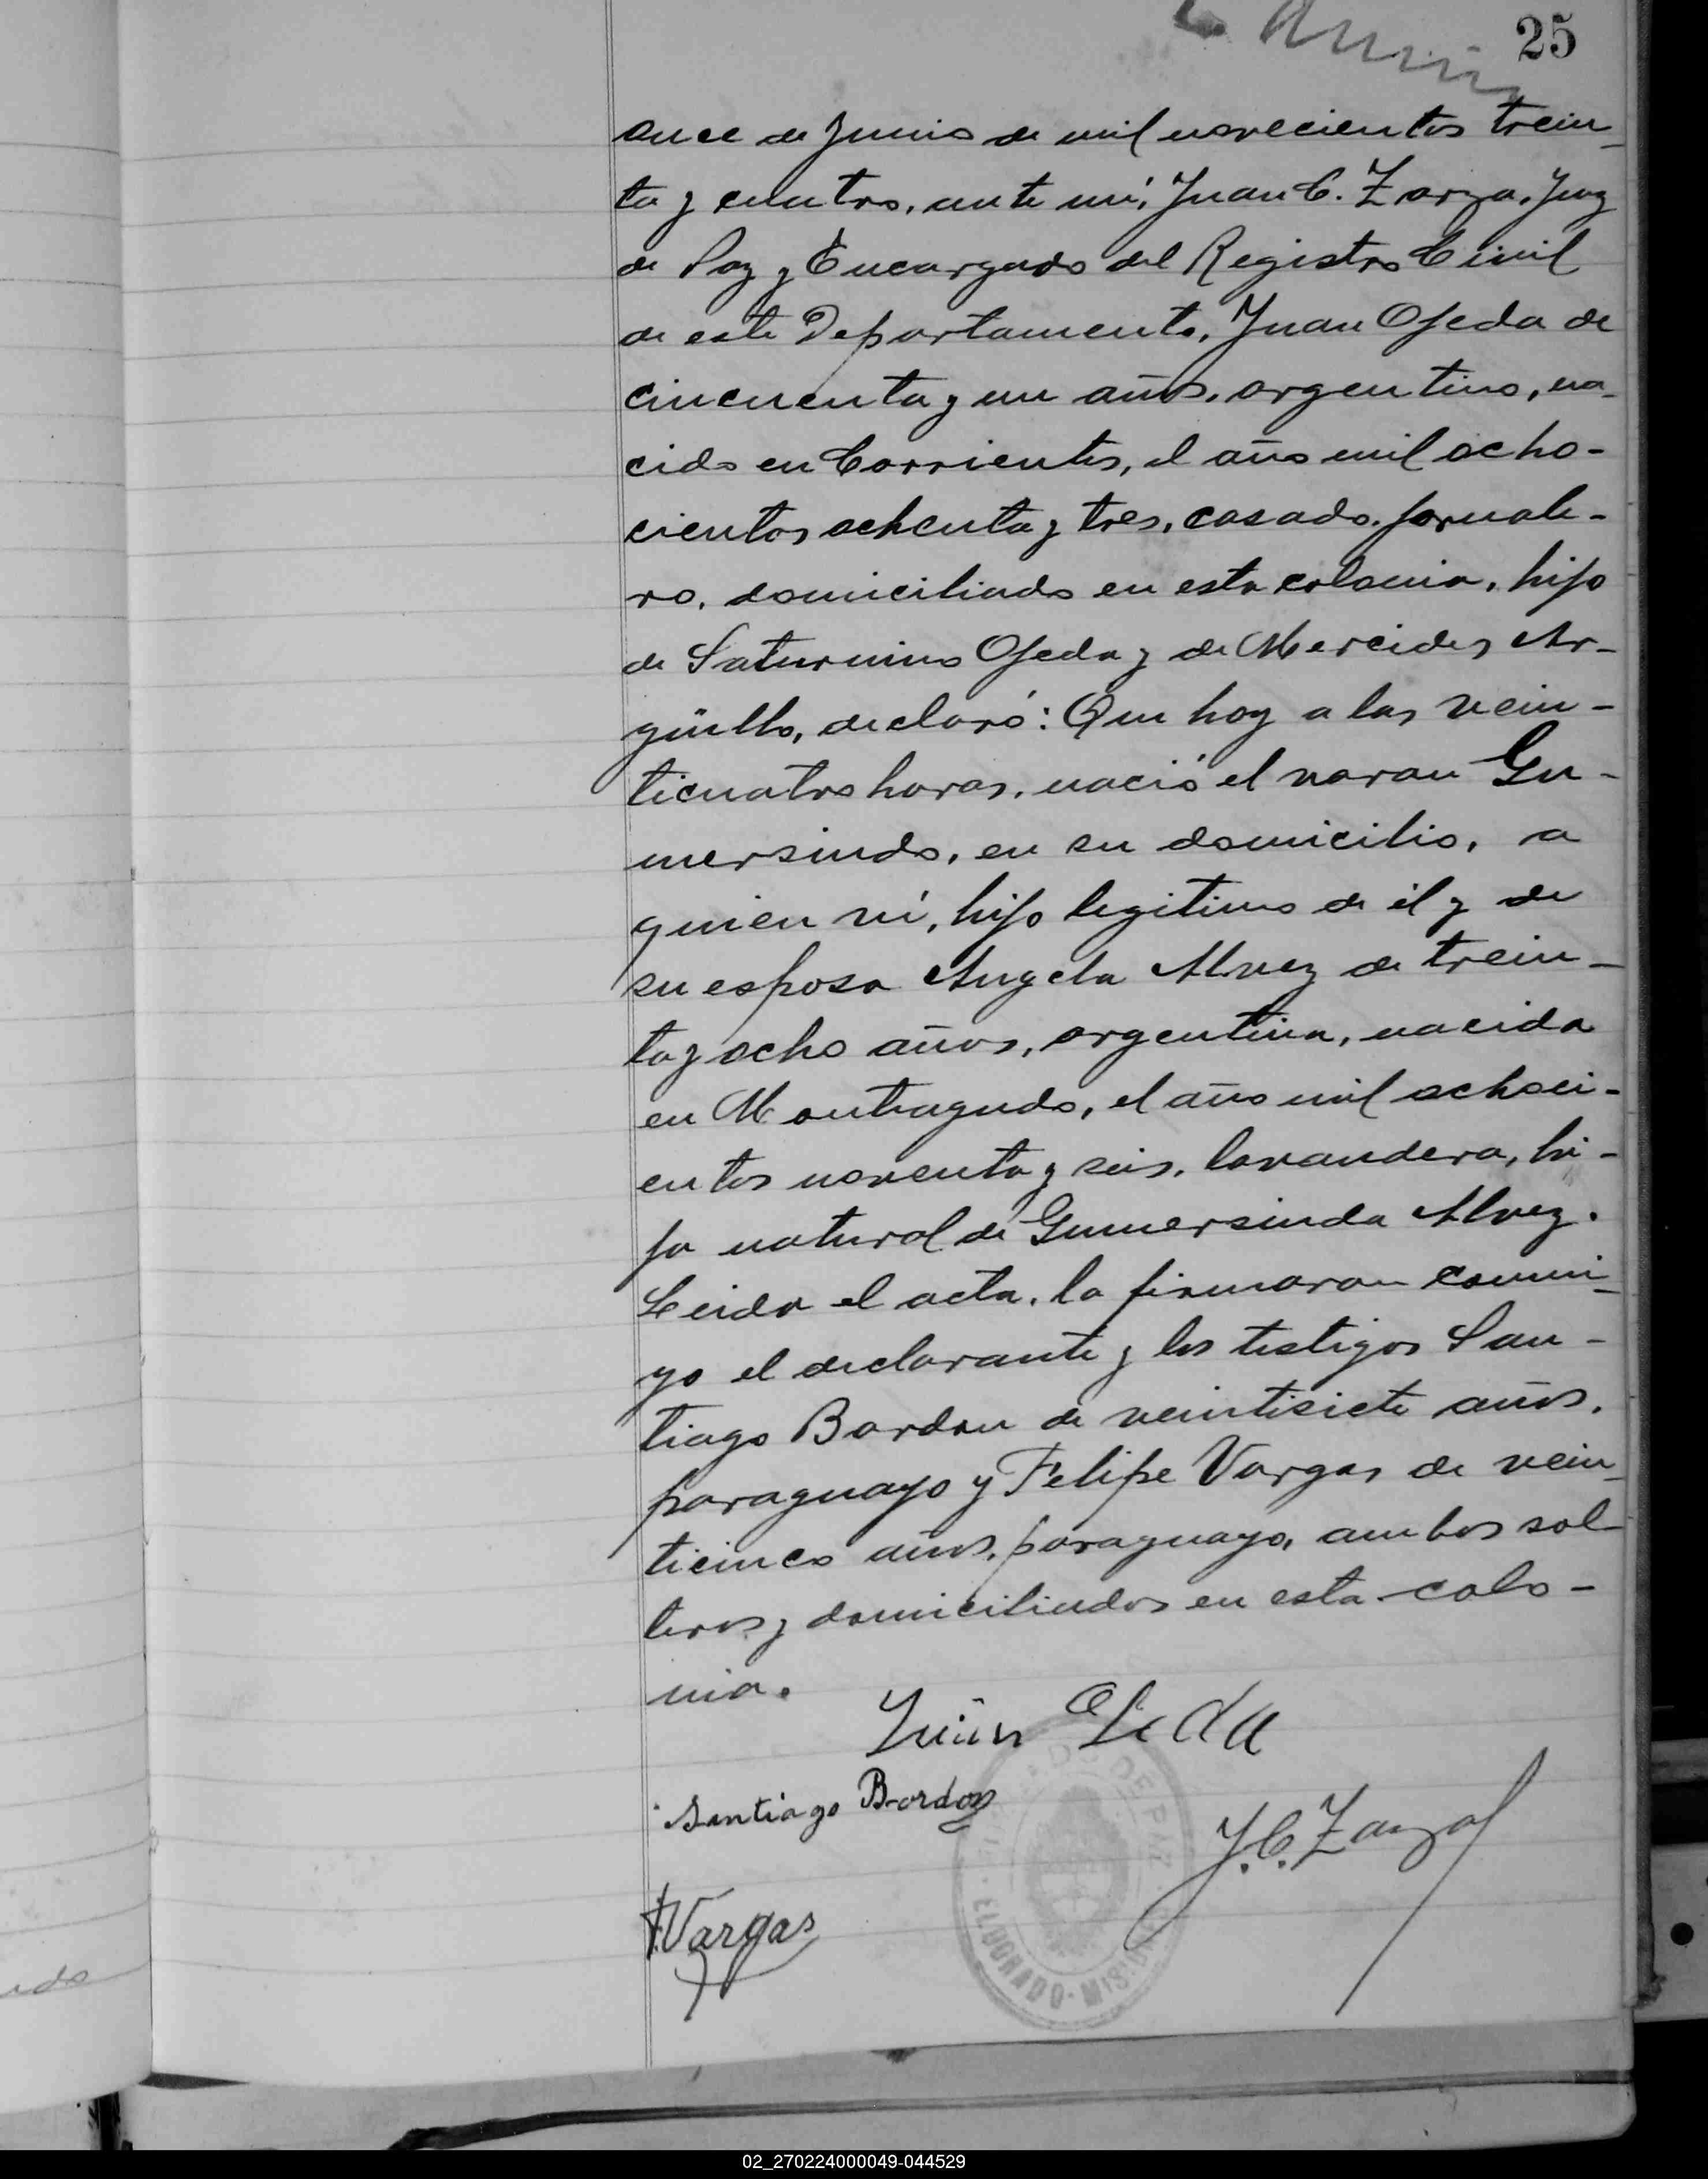 25
once de Junio de mil novecientos trein-
ta y cuatro, ante mí, Juan C. Zarza, Juez
de Paz y Encargado del Registro Civil
de este Departamento, Juan Ojeda de
cincuenta y un años, argentino, na-
cido en Corrientes, el año mil ocho-
cientos ochenta y tres, casado, jornale-
ro, domiciliado en esta colonia, hijo
de Saturnino Ojeda y de Mercides Ar-
güello, declaró: Que hoy a las vein-
ticuatro horas, nació el varon Gu-
mersindo, en su domicilio, a
quien ví, hijo legitimo de él y de
su esposa Angela Alvez de trein-
ta y ocho años, argentina, nacida
en Monteagudo, el año mil ochoci-
entos noventa y seis, lavandera, hi-
ja natural de Gumersinda Alvez.
Leida el acta, la firmaron conmi-
go el declarante y los testigos San-
tiago Bordon de veintisiete años,
paraguayo y Felipe Vargas de vein-
ticinco años, paraguayo, ambos sol-
teros y domiciliados en esta colo-
nia.
Juan Ojeda
Santiago Bordon
J. C. Zarza
F. Vargas
DE PAZ
ELDORADO - MISIONES
02_270224000049-044529